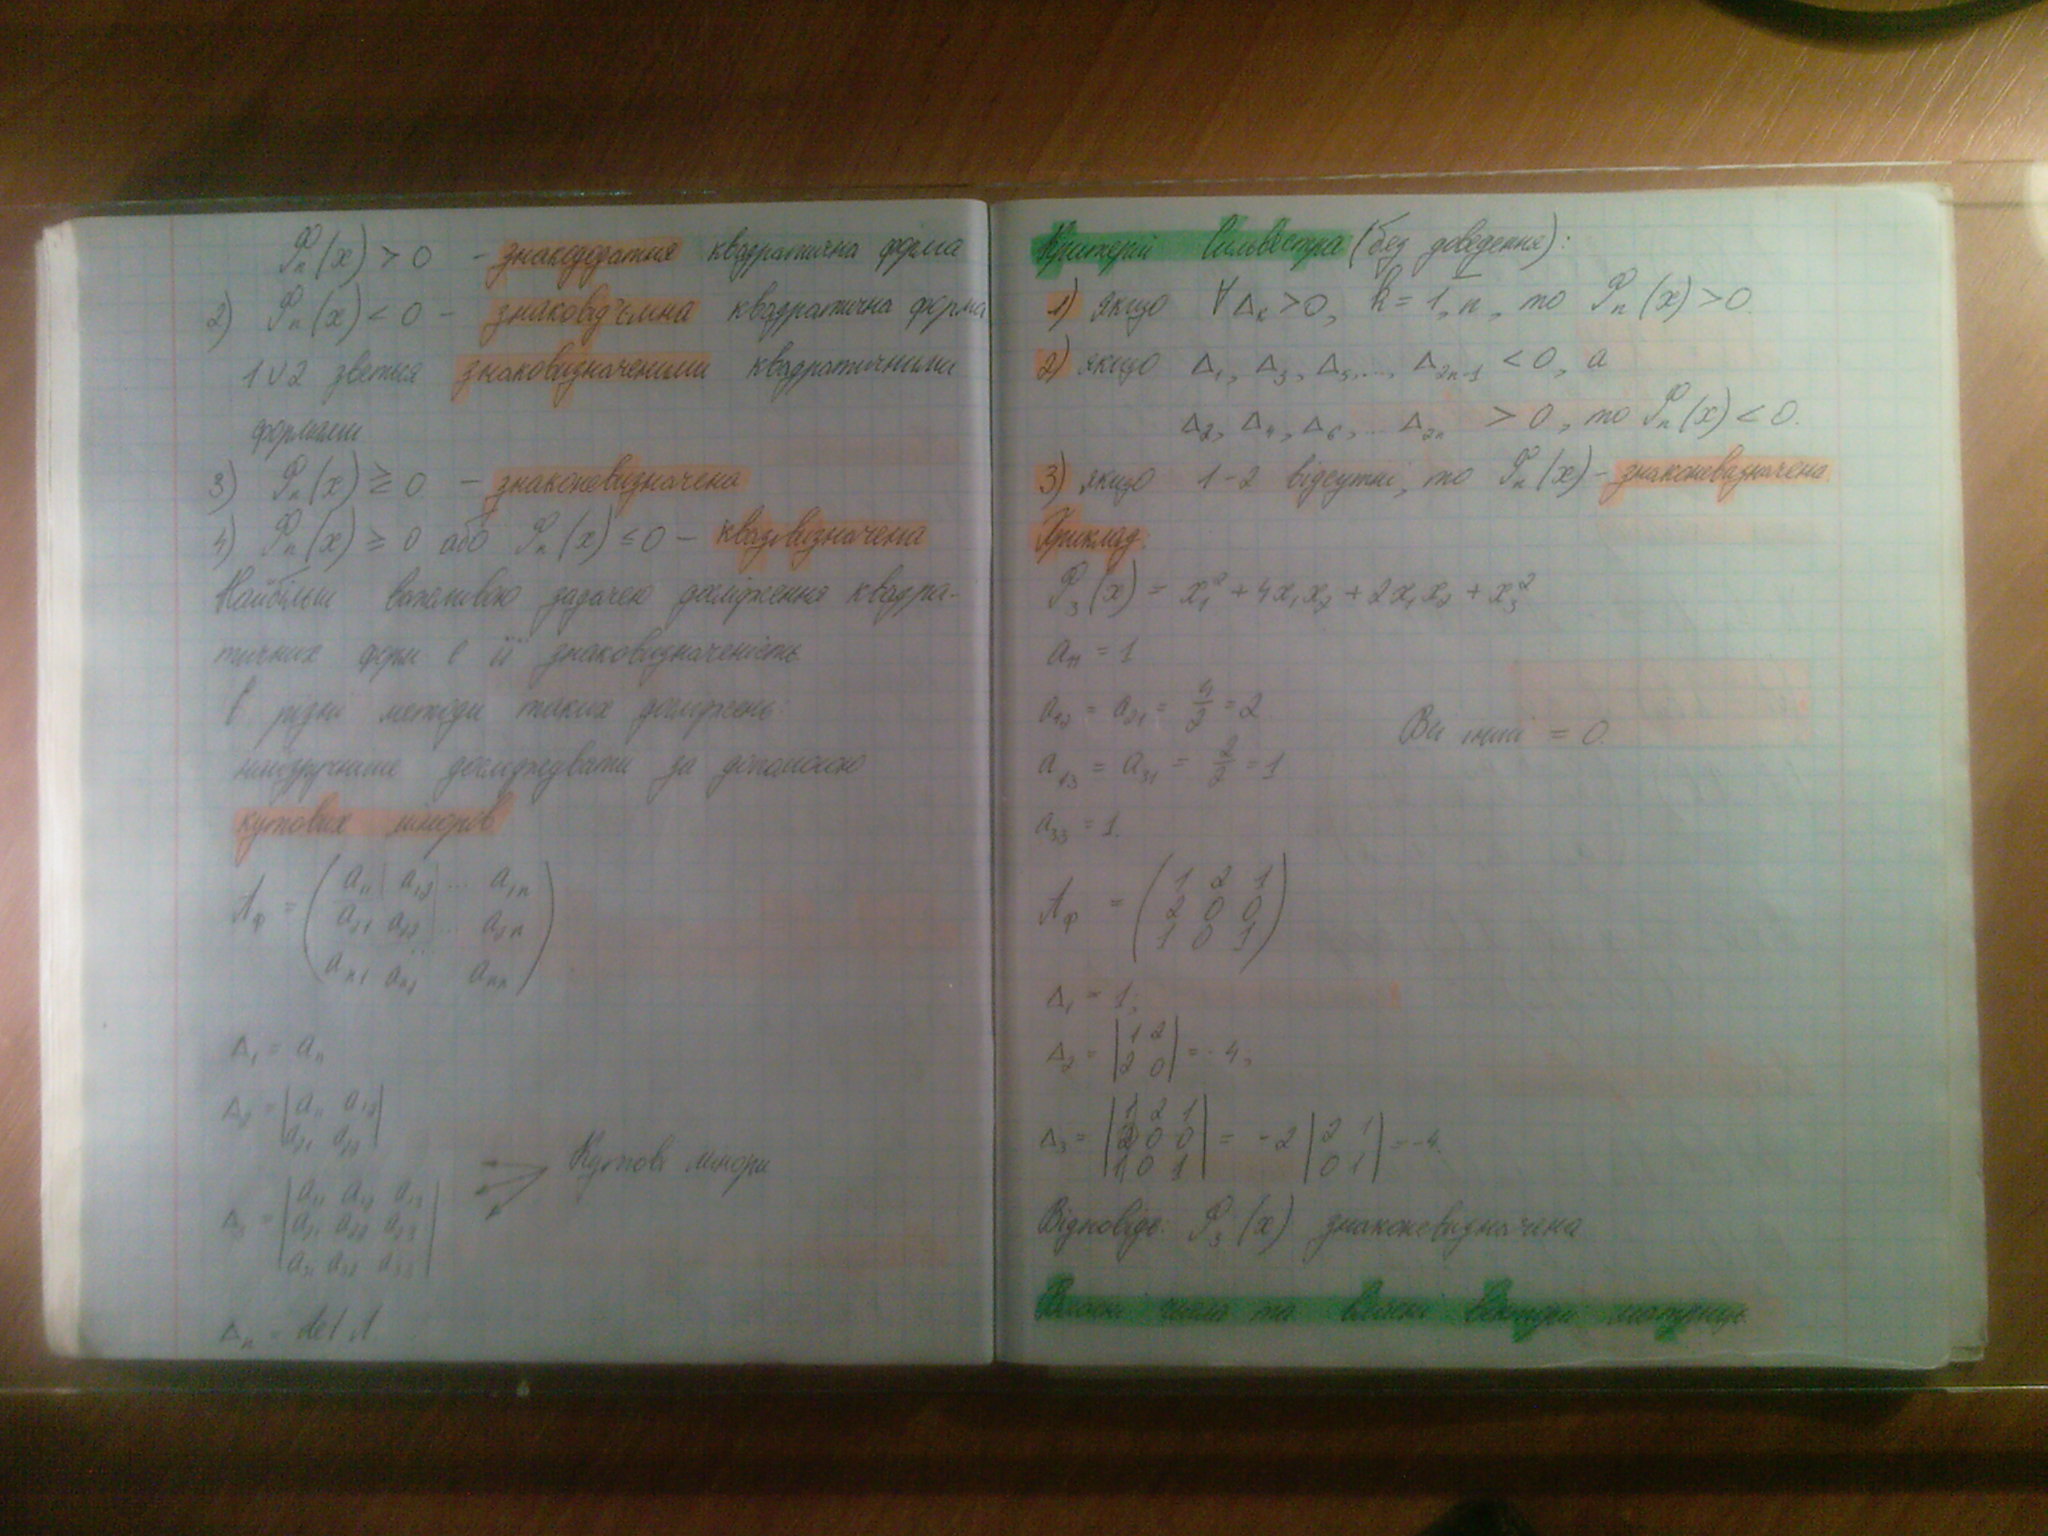 Φₙ(x) > 0 - знакододатня квадратична форма
2) Φₙ(x) < 0 - знаковід'ємна квадратична форма
1 ∪ 2 звуться знаковизначеними квадратичними
формами
3) Φₙ(x) ≷ 0 - знаконевизначена
4) Φₙ(x) ≥ 0 або Φₙ(x) ≤ 0 - квазівизначена
Найбільш важливою задачею дослідження квадра-
тичних форм є її знаковизначеність.
Є різні методи таких досліджень:
найзручніше досліджувати за допомогою
кутових мінорів
A_Φ = ( a₁₁ a₁₂ ... a₁ₙ
a₂₁ a₂₂ ... a₂ₙ
...
aₙ₁ aₙ₂ aₙₙ )
Δ₁ = a₁₁
Δ₂ = | a₁₁ a₁₂
a₂₁ a₂₂ |
Кутові мінори
Δ₃ = | a₁₁ a₁₂ a₁₃
a₂₁ a₂₂ a₂₃
a₃₁ a₃₂ a₃₃ |
Δₙ = det A.
Критерій Сильвестра (без доведення):
1) якщо ∀ Δₖ > 0, k = 1, n, то Φₙ(x) > 0.
2) якщо Δ₁, Δ₃, Δ₅, ..., Δ₂ₙ₋₁ < 0, а
Δ₂, Δ₄, Δ₆, ... Δ₂ₙ > 0, то Φₙ(x) < 0.
3) якщо 1-2 відсутні, то Φₙ(x) - знаконевизначена.
Приклад:
Φ₃(x) = x₁² + 4x₁x₂ + 2x₁x₃ + x₃²
a₁₁ = 1
a₁₂ = a₂₁ = 4/2 = 2
Всі інші = 0.
a₁₃ = a₃₁ = 2/2 = 1
a₃₃ = 1.
A_Φ = ( 1 2 1
2 0 0
1 0 1 )
Δ₁ = 1;
Δ₂ = | 1 2
2 0 | = -4;
Δ₃ = | 1 2 1
2 0 0
1 0 1 | = -2 | 2 1
0 1 | = -4.
Відповідь: Φ₃(x) знаконевизначена
Власні числа та власні вектори матриць.